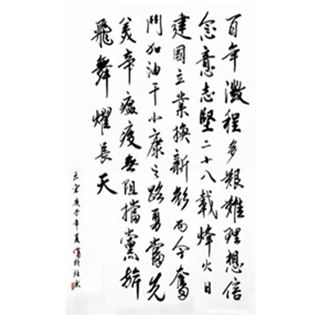 百年徵程多艱難理想信
念意志堅二十八載烽火日
建國立業換新顏而今奮
鬥加油干小康之路勇當先
美帝瘟疫無阻擋黨旗
飛舞耀長天
庚子年夏